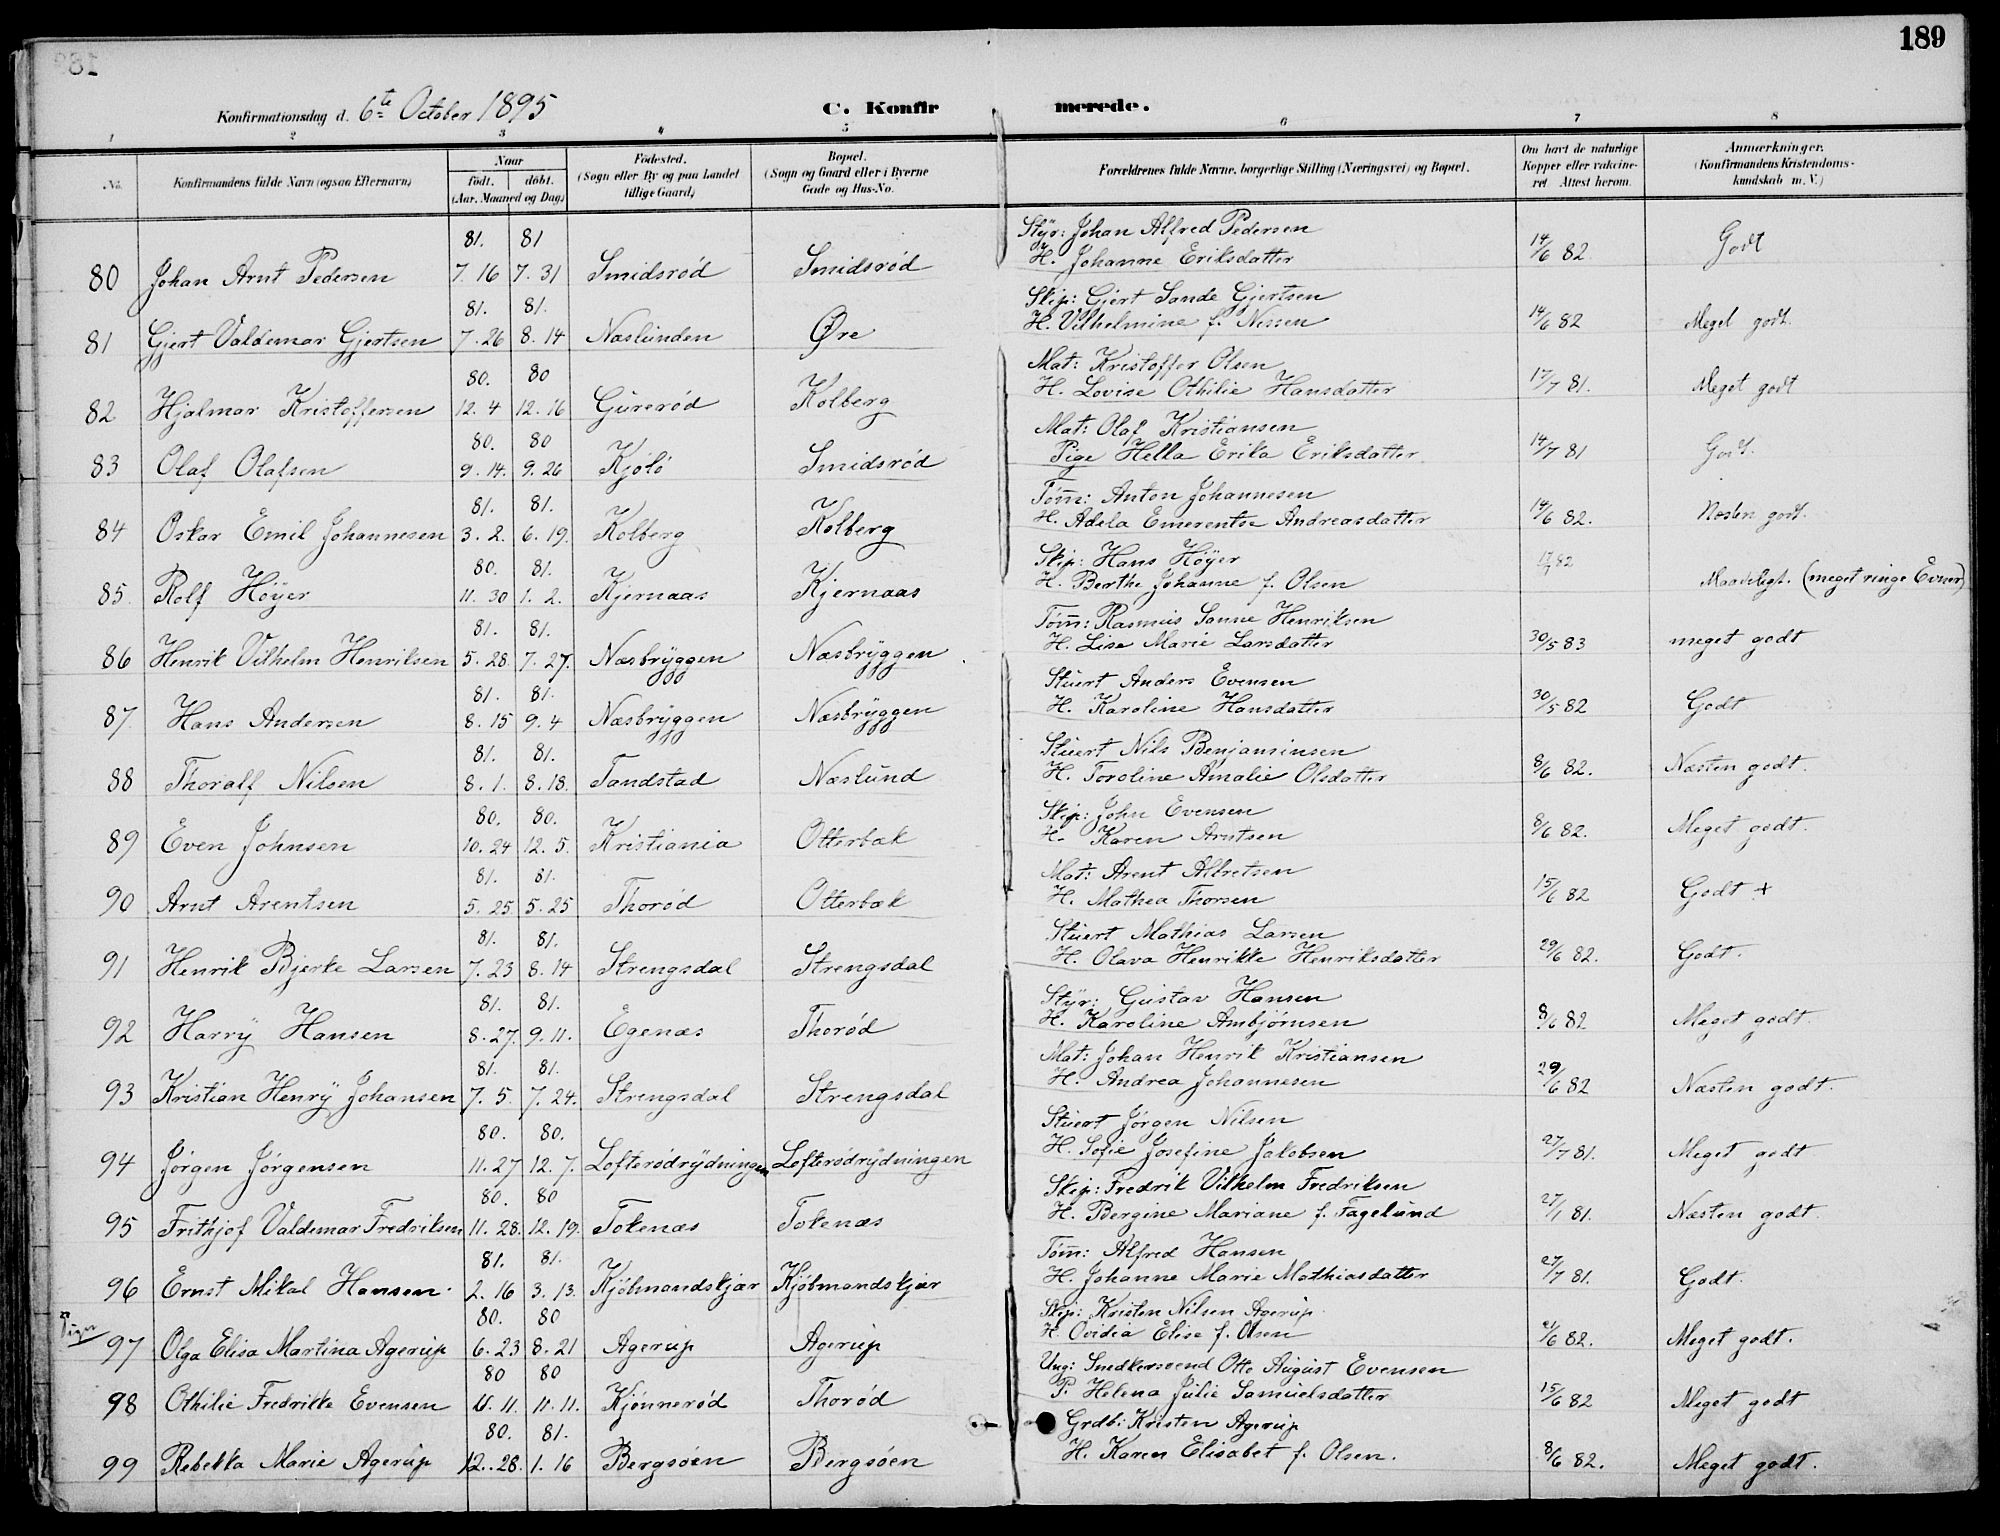 189
Konfirmationsdag d. 6te October 1895 C. Konfirmerede.
1 2 3 4 5 6 7 8
No. Konfirmandens fulde Navn (ogsaa Efternavn) Naar født. døbt. (Aar. Maaned og Dag) Fødested. (Sogn eller By og paa Landet tillige Gaard) Bopæl. (Sogn og Gaard eller i Byerne Gade og Hus-No. Forældrenes fulde Navne, borgerlige Stilling (Næringsvei) og Bopæl. Om havt de naturlige Kopper eller vakcineret Attest herom. Anmærkninger. (Konfirmandens Kristendomskundskab m. V.)
81. 81 Styr: Johan Alfred Pedersen
80 Johan Arnt Pedersen 7. 16 7. 31 Smidsrød Smidsrød H. Johanne Eriksdatter 14/6 82 Godt
81. 81. Skip: Gjert Sande Gjertsen
81 Gjert Valdemar Gjertsen 7. 26 8. 14 Næslunden Øre H. Vilhelmine f. Nissen 14/6 82 Meget godt.
80. 80 Mat: Kristoffer Olsen
82 Hjalmar Kristoffersen 12. 4 12. 16 Gurerød Kolberg H. Lovise Othilie Hansdatter 17/7 81. Meget godt
80. 80 Mat: Olaf Kristiansen
83 Olaf Olafsen 9. 14. 9. 26 Kjølø Smidsrød Pige Hella Erika Eriksdatter 14/7 81 Godt.
81. 81. Tøm: Anton Johannesen
84 Oskar Emil Johannesen 3. 2. 6. 19. Kolberg Kolberg H. Adela Emerentse Andreasdatter 14/6 82. Næsten godt.
80. 81. Skip: Hans Høyer
85. Rolf Höyer 11. 30 1. 2. Kjernaas Kjernaas H. Berthe Johanne f. Olsen Maadeligt. (meget ringe Evner)
81. 81. Tøm: Rasmus Sanne Henriksen
86 Henrik Vilhelm Henriksen 5. 28. 7. 27. Næsbryggen Næsbryggen H. Lise Marie Larsdatter 30/5 83 meget godt
81. 81. Stuert Anders Evensen
87. Hans Andersen 8. 15 9. 4 Næsbryggen Næsbryggen H. Karoline Hansdatter 30/5 82 Godt
81. 81. Stuert Nils Benjaminsen
88 Thoralf Nilsen 8. 1. 8. 18. Tandstad Næslund H. Toroline Amalie Olsdatter 8/6 82. Næsten godt.
80. 80. Skip: John Evensen
89 Even Johnsen 10. 24 12. 5. Kristiania Otterbæk H. Karen Arntsen 8/6 82. Meget godt.
81. 81. Mat: Arent Albretsen
90 Arnt Arentsen 5. 25 5. 25 Thorød Otterbæk H. Mathea Thorsen 15/6 82 Godt +
81. 81. Stuert Mathias Larsen
91 Henrik Bjerke Larsen 7. 23 8. 14 Strengsdal Strengsdal H. Olava Henrikke Henriksdatter 29/6 82. Godt.
81. 81. Styr: Gustav Hansen
92 Harry Hansen 8. 27. 9. 11. Egenæs Thorød H. Karoline Ambjørnsen 8/6 82 Meget godt.
81. 81. Mat: Johan Henrik Kristiansen
93 Kristian Henry Johansen 7. 5. 7. 24. Strengsdal Strengsdal H. Andrea Johannesen 29/6 82 Næsten godt.
80. 80. Stuert Jørgen Nilsen
94 Jørgen Jørgensen 11. 27 12. 7. Lofterødrydningen Lofterødrydningen H. Sofie Josefine Jakobsen 27/7 81. Meget godt
80. 80 Skip: Fredrik Vilhelm Fredriksen
95 Frithjof Valdemar Fredriksen 11. 28. 12. 19. Tokenæs Tokenæs H. Bergine Mariane f. Fagelund 27/1 81. Næsten godt.
81. 81. Tøm: Alfred Hansen
96 Ernst Mikal Hansen 2. 16 3. 13. Kjøbmandskjær Kjøbmandskjær H. Johanne Marie Mathiasdatter 27/7 81. Godt.
Piger 80. 80 Skip: Kristen Nilsen Agerup
97 Olga Elisa Martina Agerup 6. 23 8. 21 Agerup Agerup H. Ovidia Elise f. Olsen 21/6 82. Meget godt.
80 80 Ung: Snedkersvend Otto August Evensen
98 Othilie Fredrikke Evensen 11. 11. Kjønnerød Thorød P. Helena Julie Samuelsdatter 15/6 82 Meget godt
80. 81. Grdb: Kristen Agerup
99 Rebekka Marie Agerup 12. 28. 1. 16 Bergsøen Bergsøen H. Karen Elisabet f. Olsen. 8/6 82. Meget godt.